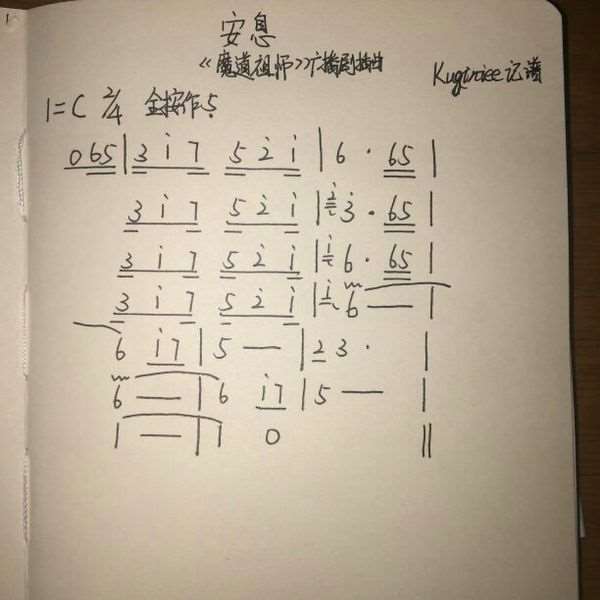 安息
《魔道祖师》广播剧插曲
Kugiraiee记谱
1=C 2/4 全按作5̣
0 65 | 3 i 7 5 2̇ i | 6 · 65 |
3 i 7 5 2̇ i | 2̇ 3̇ · 65 |
3 i 7 5 2̇ i | i 6 · 65 |
3 i 7 5 2̇ i | i 6 — |
6 i7 | 5 — | 2 3 · |
6 — | 6 i7 | 5 — |
1 — | 1 0 ||